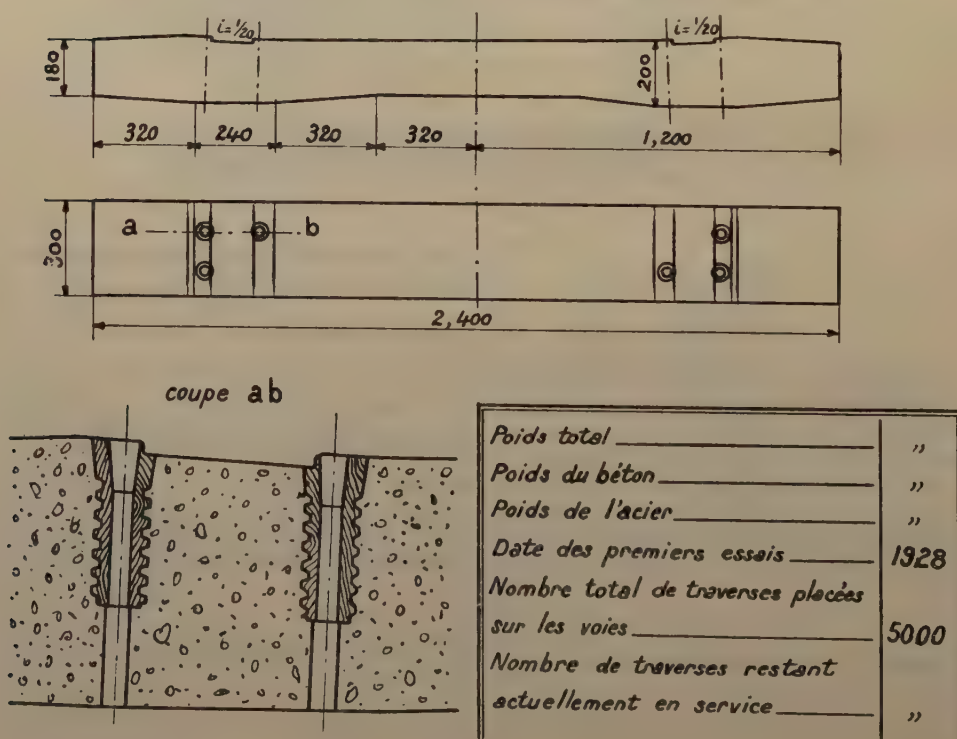 i=1/20 i=1/20
180 200
320 240 320 320 1,200
a b
300
2,400
coupe ab
Poids total „
Poids du béton „
Poids de l'acier „
Date des premiers essais 1928
Nombre total de traverses placées
sur les voies 5000
Nombre de traverses restant
actuellement en service „